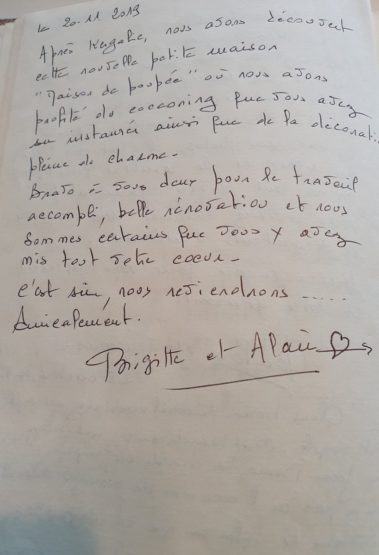 le 20.11 2019
Après Kergalie, nous avons découvert
cette nouvelle petite maison
"Maison de poupée" où nous avons
profité du cocooning que vous avez
su instaurer ainsi que de la décoration
pleine de charme.
Bravo à vous deux pour le travail
accompli, belle rénovation et nous
sommes certains que vous y avez
mis tout votre coeur.
C'est sûr, nous reviendrons .....
Amicalement.
Brigitte et Alain